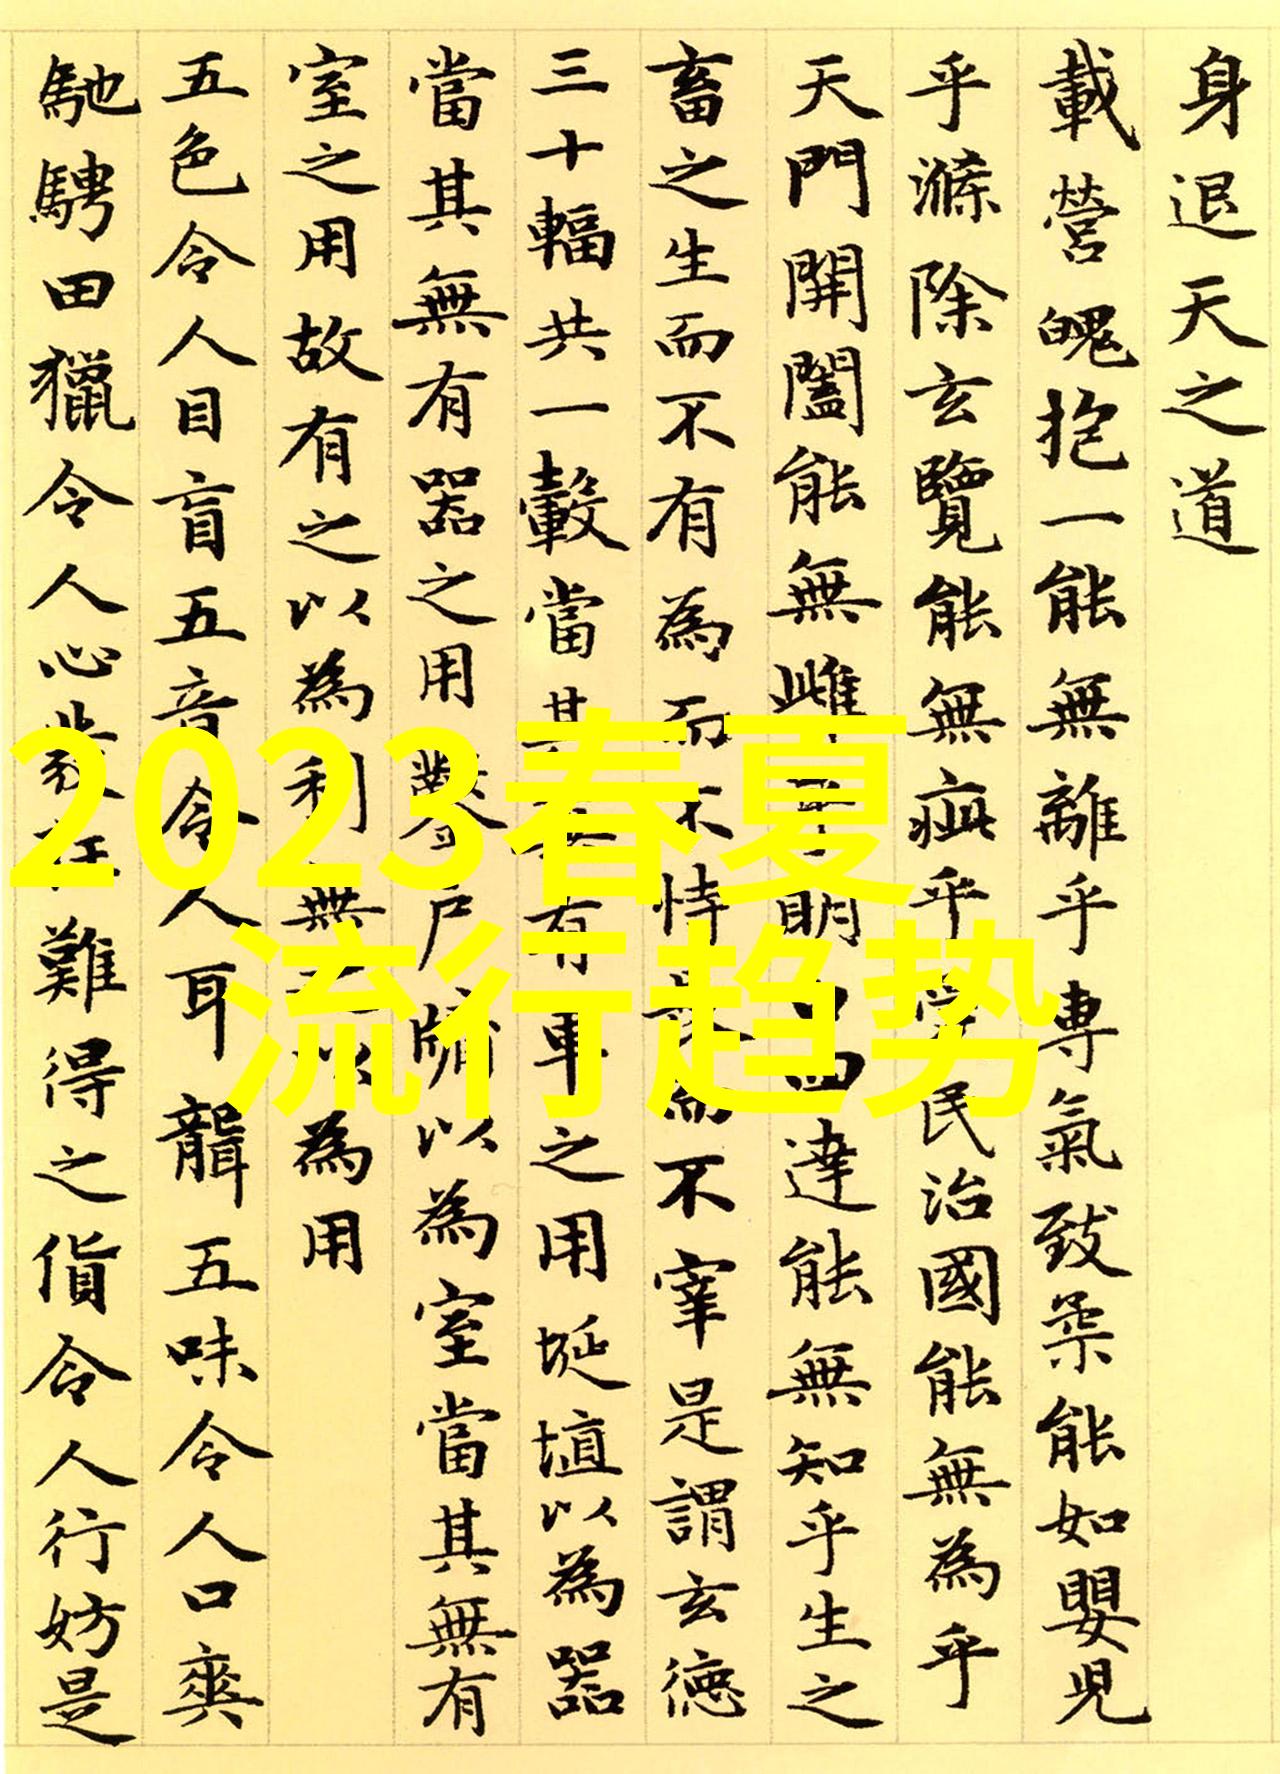 身退天之道
載營魄抱一能無離乎專氣致柔能如嬰兒
乎滌除玄覽能無疵乎 民治國能無為乎
天門開闔能無雌 明 四達能無知乎生之
畜之生而不有為而不恃 而不宰是謂玄德
三十輻共一轂當其 有車之用埏埴以為器
當其無有器之用鑿戶牖以為室當其無有
室之用故有之以為利無 以為用
五色令人目盲五音令人耳聾五味令人口爽
馳騁田獵令人心 難得之貨令人行妨是
2023春夏
流行趋势